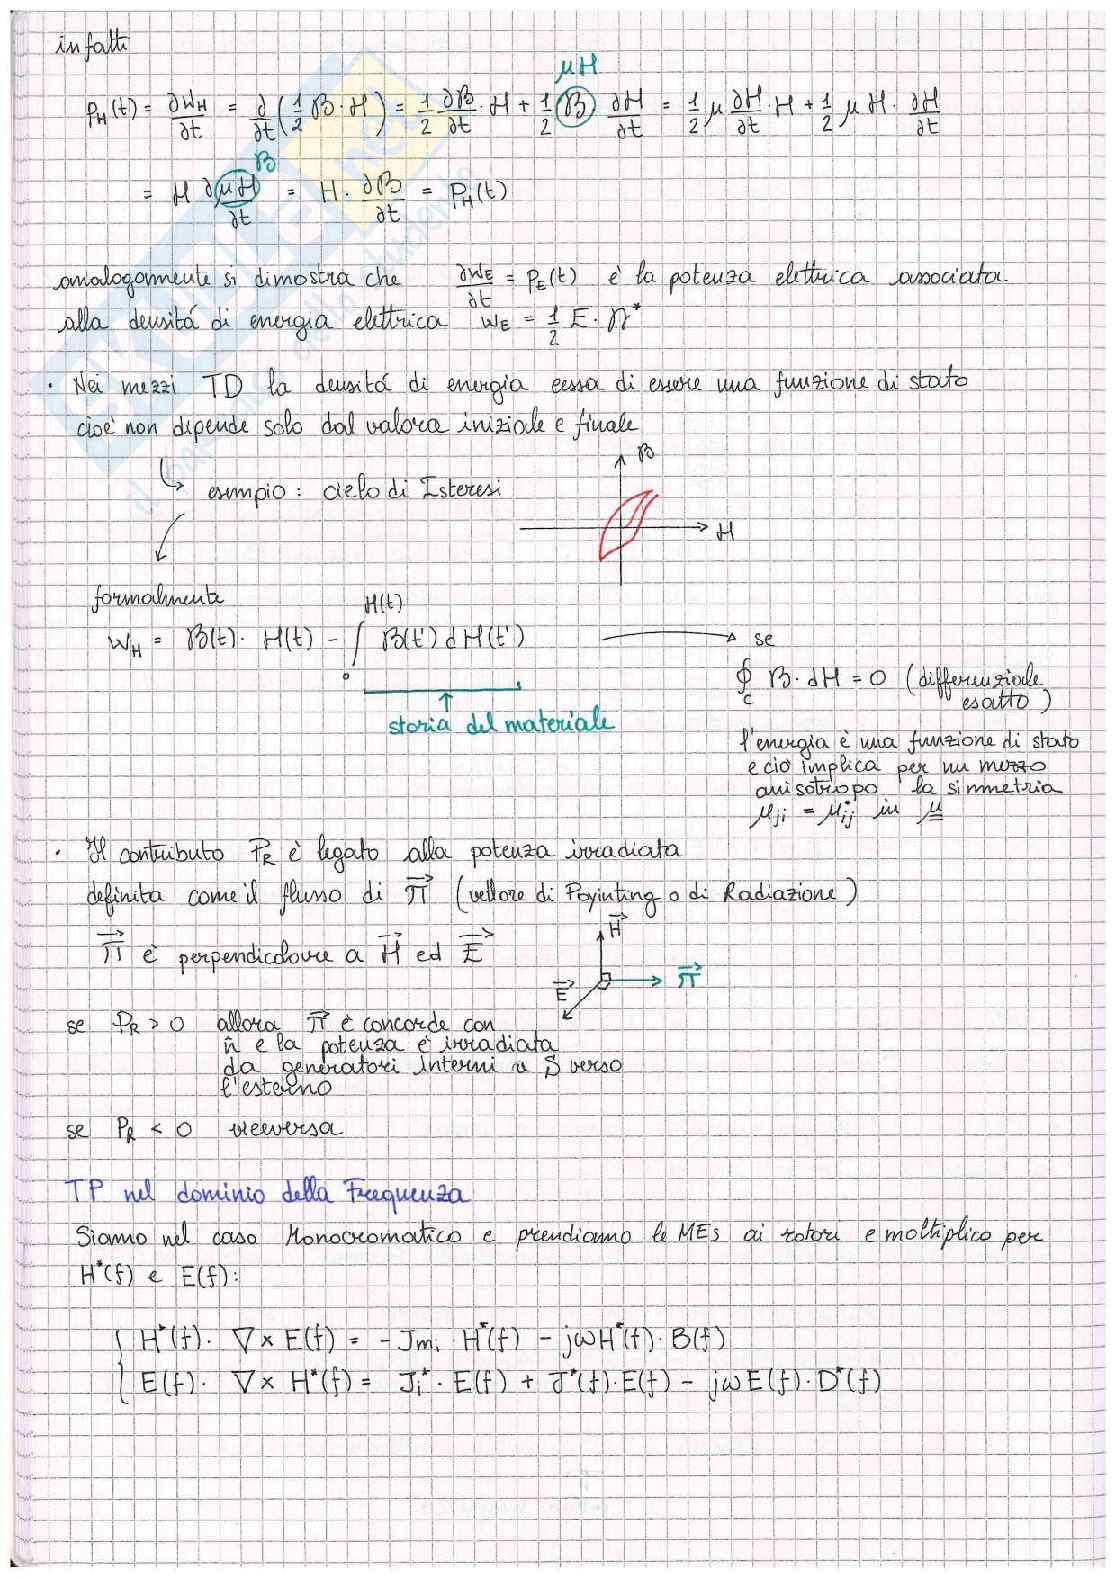 infatti
μH
p_H(t) = ∂w_H/∂t = ∂/∂t (1/2 B · H) = 1/2 ∂B/∂t · H + 1/2 B ∂H/∂t = 1/2 μ ∂H/∂t · H + 1/2 μ H · ∂H/∂t
B
= H ∂μH/∂t = H · ∂B/∂t = P_H(t)
analogamente si dimostra che ∂w_E/∂t = p_E(t) è la potenza elettrica associata
alla densitá di energia elettrica w_E = 1/2 E · D*
· Nei mezzi TD la densitá di energia cessa di essere una funzione di stato
cioè non dipende solo dal valora iniziale e finale
esempio : ciclo di Isteresi
B
H
formalmente
H(t)
w_H = B(t) · H(t) - ∫ B(t') dH(t') → se
0
∮_C B · dH = 0 (differenziale
esatto)
storia del materiale
l'energia è una funzione di stato
e ció implica per un mezzo
anisotropo la simmetria
μ_ji = μ_ij in μ
· Il contributo P_R è legato alla potenza irradiata
definita come il flusso di π (vettore di Poyinting o di Radiazione)
H
π è perpendicolare a H ed E
π
E
se P_R > 0 allora π è concorde con
n̂ e la potenza è irradiata
da generatori interni a S verso
l'esterno
se P_R < 0 viceversa
TP nel dominio della Frequenza
Siamo nel caso Monocromatico e prendiamo le MEs ai rotori e moltiplico per
H*(f) e E(f):
{ H*(f) · ∇ × E(f) = - Jm. H*(f) - jωH*(f) · B(f)
E(f) · ∇ × H*(f) = J_i* · E(f) + J*(f) · E(f) - jωE(f) · D*(f)